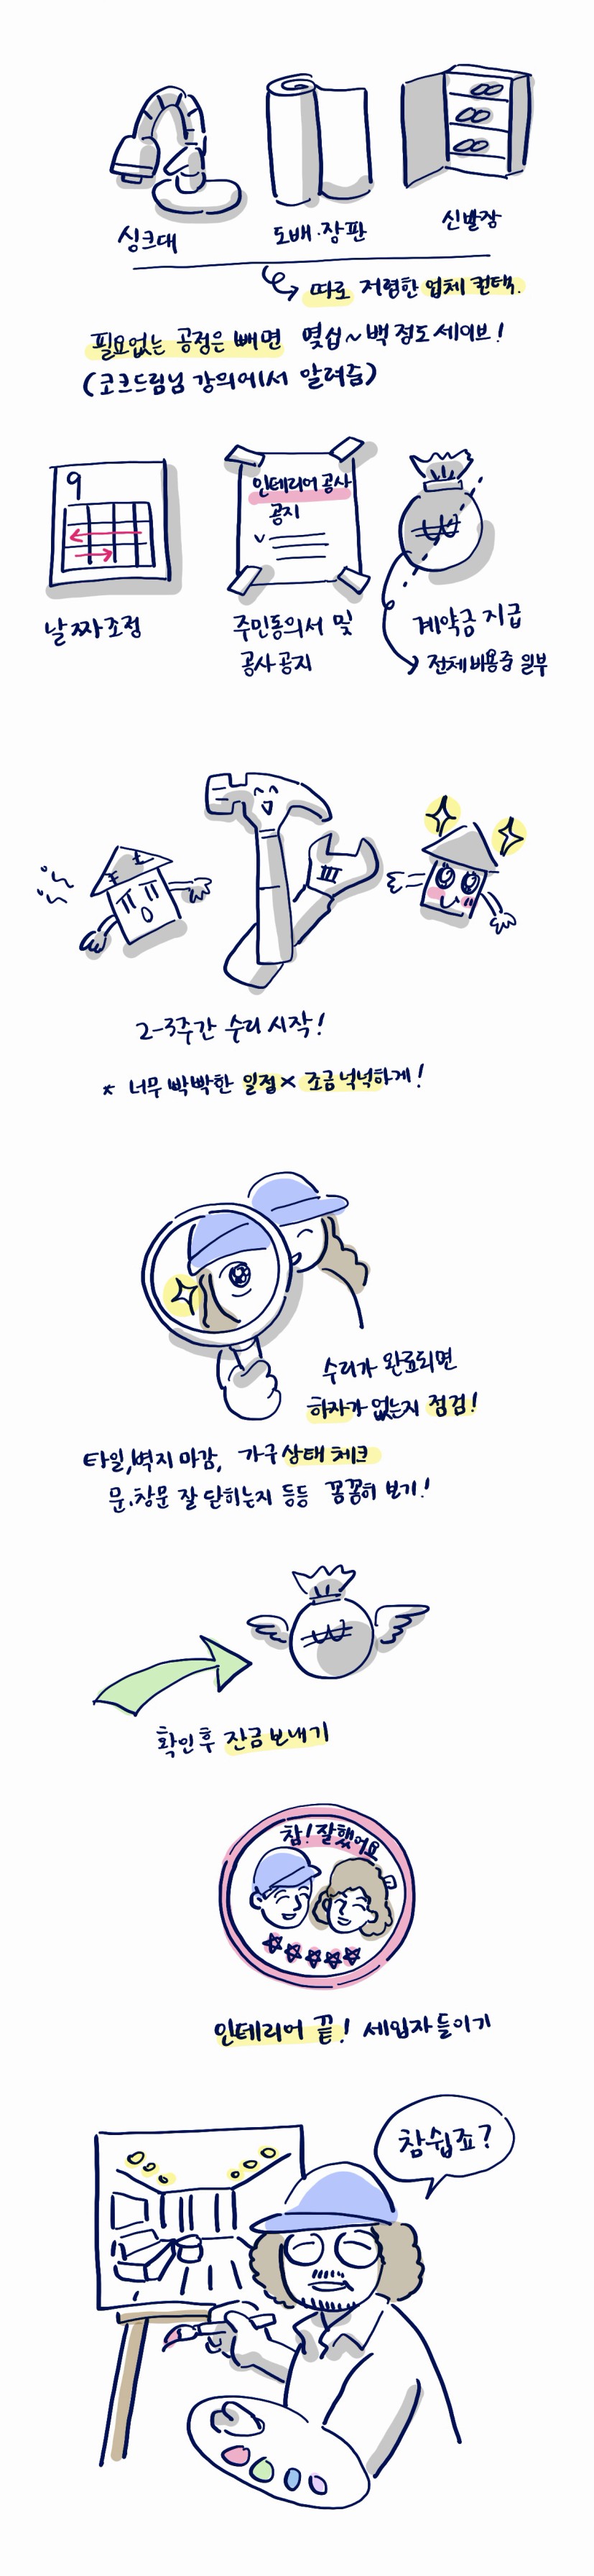 싱크대
도배·장판
신발장
따로 저렴한 업체 컨택.
필요없는 공정은 빼면 몇십~백 정도 세이브!
(코크드림님 강의에서 알려줌)
9
날짜조정
인테리어 공사
공지
주민동의서 및
공사공지
₩
계약금 지급
전체비용중 일부
2-3주간 수리 시작!
* 너무 빡빡한 일정 X 조금 넉넉하게!
수리가 완료되면
하자가 없는지 점검!
타일,벽지 마감, 가구 상태 체크
문.창문 잘 닫히는지 등등 꼼꼼히 보기!
₩
확인후 잔금보내기
참! 잘했어요
인테리어 끝! 세입자들이기
참쉽죠?